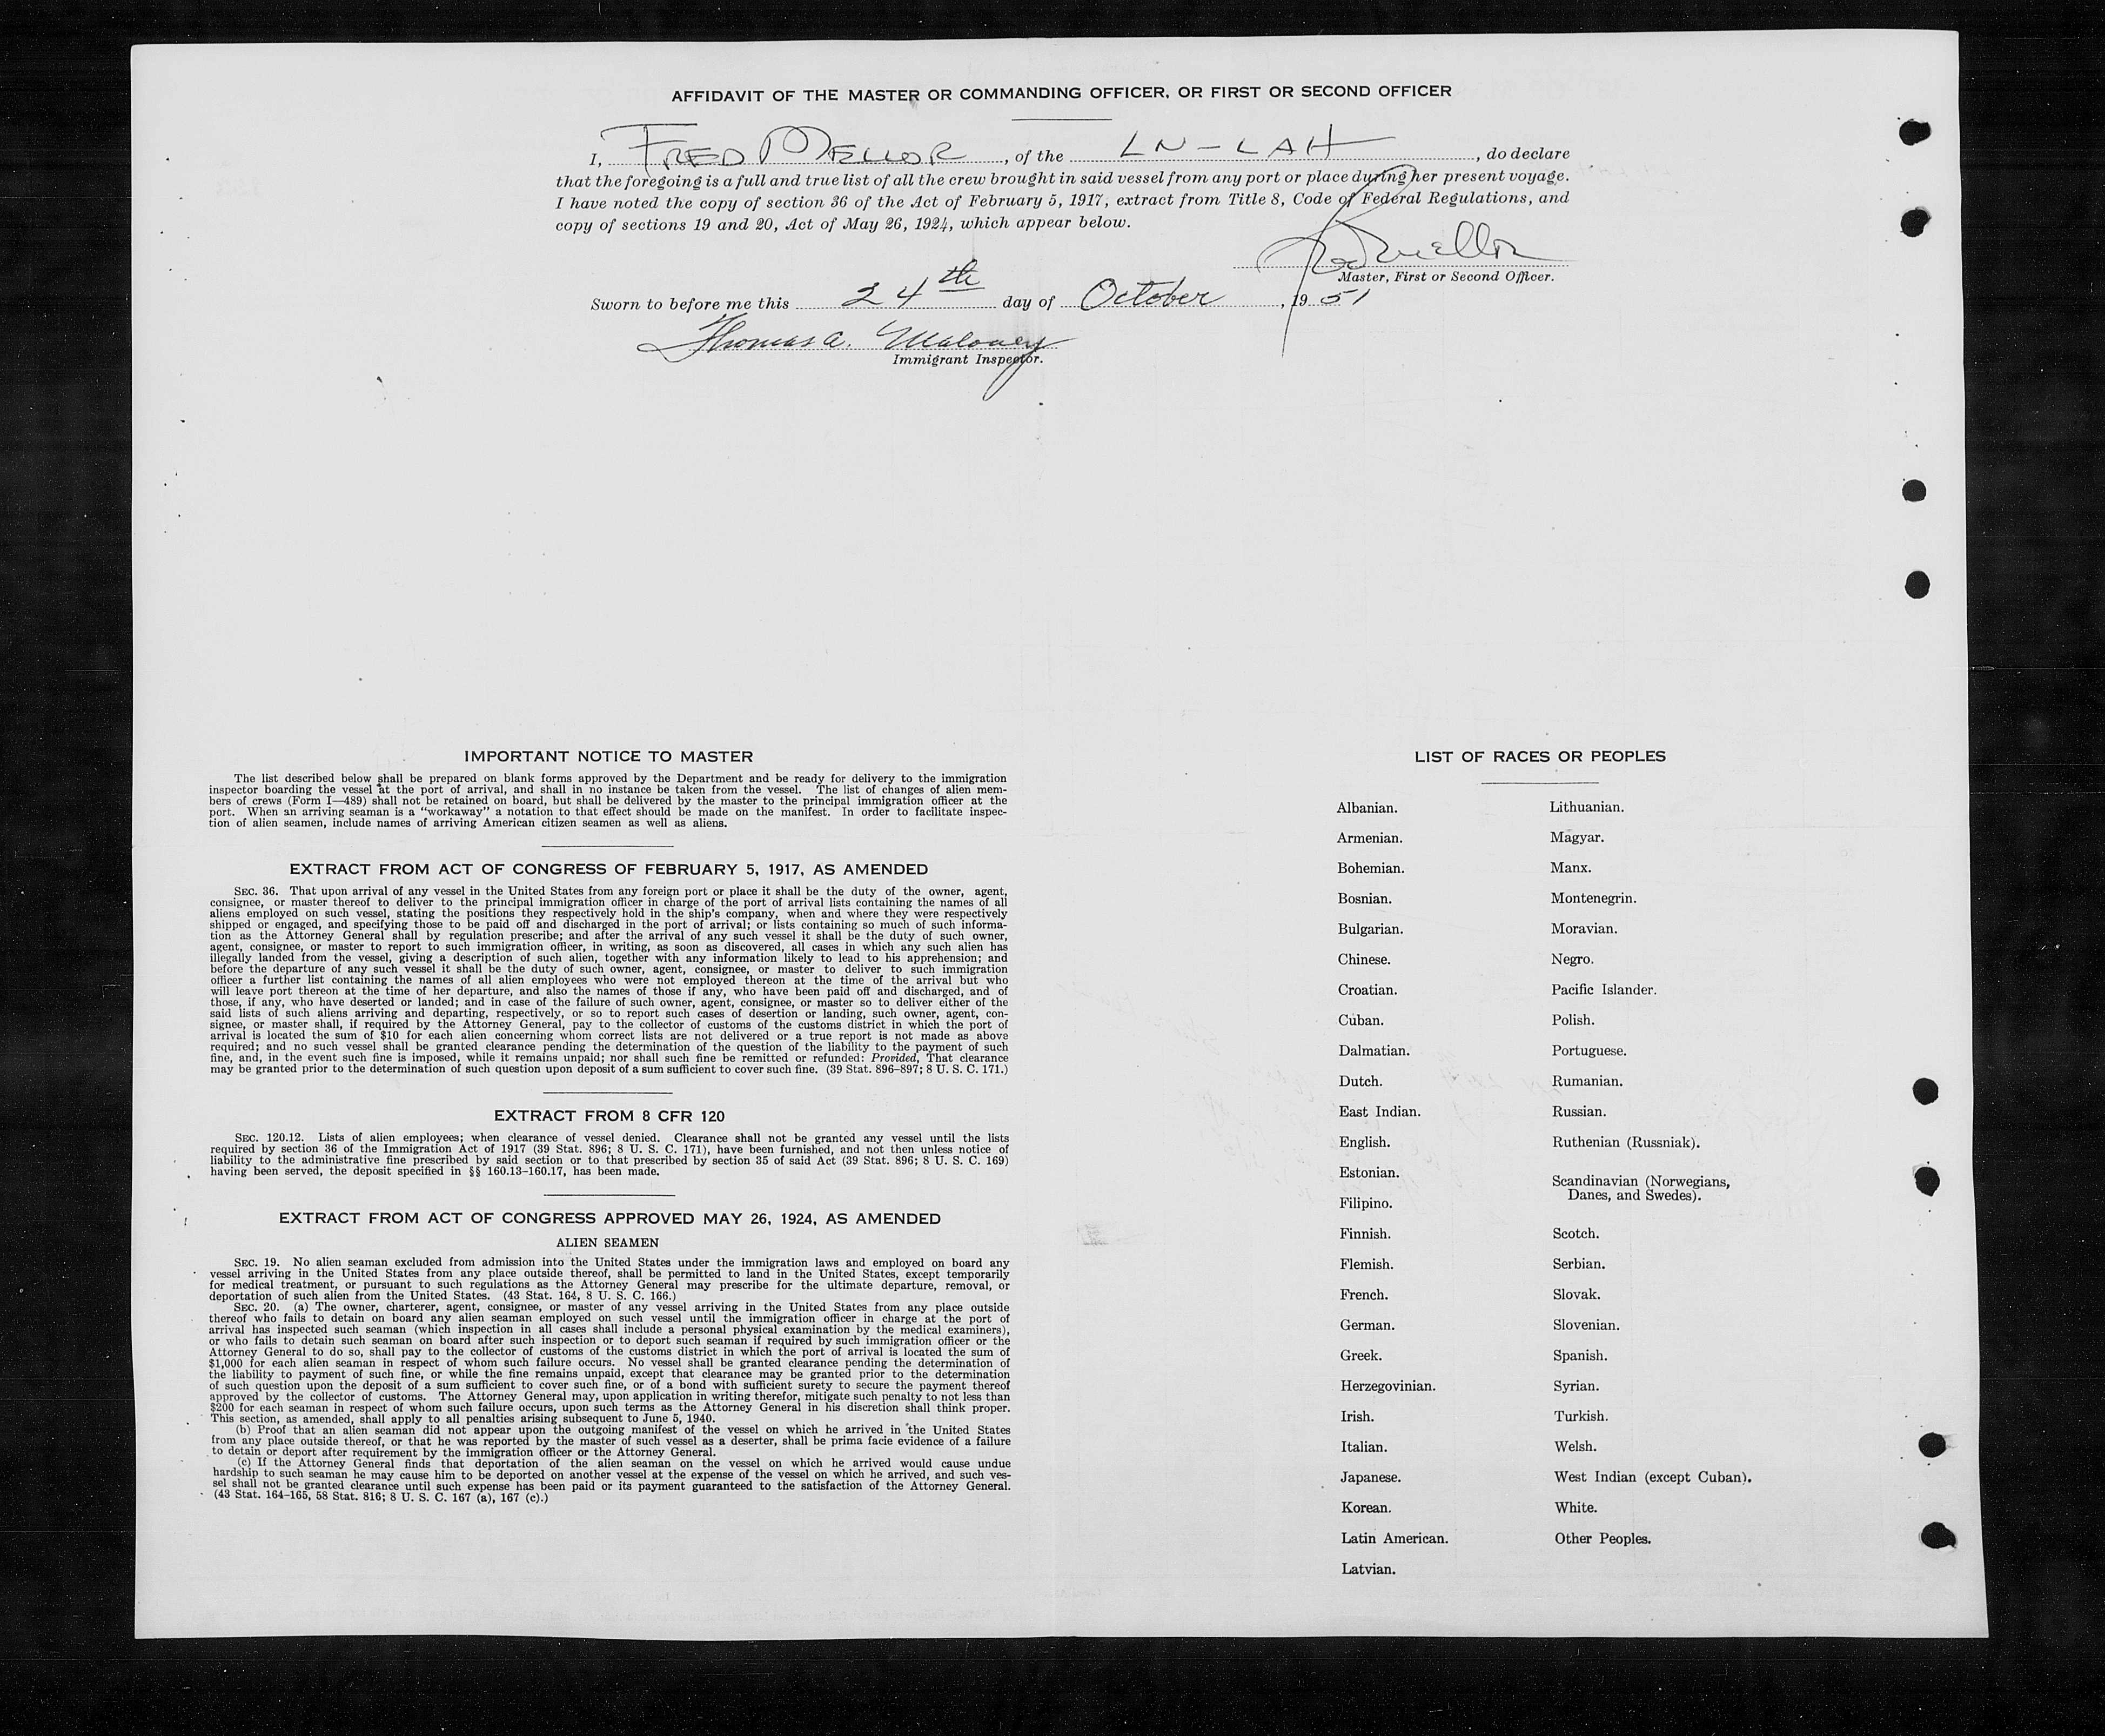 AFFIDAVIT OF THE MASTER OR COMMANDING OFFICER, OR FIRST OR SECOND OFFICER
I, FRED MELLOR, of the LN-LAH, do declare
that the foregoing is a full and true list of all the crew brought in said vessel from any port or place during her present voyage.
I have noted the copy of section 36 of the Act of February 5, 1917, extract from Title 8, Code of Federal Regulations, and
copy of sections 19 and 20, Act of May 26, 1924, which appear below.
Fred Mellor
Master, First or Second Officer.
Sworn to before me this 24th day of October, 1951
Thomas A. Maloney
Immigrant Inspector.
IMPORTANT NOTICE TO MASTER
The list described below shall be prepared on blank forms approved by the Department and be ready for delivery to the immigration
inspector boarding the vessel at the port of arrival, and shall in no instance be taken from the vessel. The list of changes of alien mem-
bers of crews (Form I—489) shall not be retained on board, but shall be delivered by the master to the principal immigration officer at the
port. When an arriving seaman is a “workaway” a notation to that effect should be made on the manifest. In order to facilitate inspec-
tion of alien seamen, include names of arriving American citizen seamen as well as aliens.
EXTRACT FROM ACT OF CONGRESS OF FEBRUARY 5, 1917, AS AMENDED
SEC. 36. That upon arrival of any vessel in the United States from any foreign port or place it shall be the duty of the owner, agent,
consignee, or master thereof to deliver to the principal immigration officer in charge of the port of arrival lists containing the names of all
aliens employed on such vessel, stating the positions they respectively hold in the ship's company, when and where they were respectively
shipped or engaged, and specifying those to be paid off and discharged in the port of arrival; or lists containing so much of such informa-
tion as the Attorney General shall by regulation prescribe; and after the arrival of any such vessel it shall be the duty of such owner,
agent, consignee, or master to report to such immigration officer, in writing, as soon as discovered, all cases in which any such alien has
illegally landed from the vessel, giving a description of such alien, together with any information likely to lead to his apprehension; and
before the departure of any such vessel it shall be the duty of such owner, agent, consignee, or master to deliver to such immigration
officer a further list containing the names of all alien employees who were not employed thereon at the time of the arrival but who
will leave port thereon at the time of her departure, and also the names of those if any, who have been paid off and discharged, and of
those, if any, who have deserted or landed; and in case of the failure of such owner, agent, consignee, or master so to deliver either of the
said lists of such aliens arriving and departing, respectively, or so to report such cases of desertion or landing, such owner, agent, con-
signee, or master shall, if required by the Attorney General, pay to the collector of customs of the customs district in which the port of
arrival is located the sum of $10 for each alien concerning whom correct lists are not delivered or a true report is not made as above
required; and no such vessel shall be granted clearance pending the determination of the question of the liability to the payment of such
fine, and, in the event such fine is imposed, while it remains unpaid; nor shall such fine be remitted or refunded: Provided, That clearance
may be granted prior to the determination of such question upon deposit of a sum sufficient to cover such fine. (39 Stat. 896–897; 8 U. S. C. 171.)
EXTRACT FROM 8 CFR 120
SEC. 120.12. Lists of alien employees; when clearance of vessel denied. Clearance shall not be granted any vessel until the lists
required by section 36 of the Immigration Act of 1917 (39 Stat. 896; 8 U. S. C. 171), have been furnished, and not then unless notice of
liability to the administrative fine prescribed by said section or to that prescribed by section 35 of said Act (39 Stat. 896; 8 U. S. C. 169)
having been served, the deposit specified in §§ 160.13–160.17, has been made.
EXTRACT FROM ACT OF CONGRESS APPROVED MAY 26, 1924, AS AMENDED
ALIEN SEAMEN
SEC. 19. No alien seaman excluded from admission into the United States under the immigration laws and employed on board any
vessel arriving in the United States from any place outside thereof, shall be permitted to land in the United States, except temporarily
for medical treatment, or pursuant to such regulations as the Attorney General may prescribe for the ultimate departure, removal, or
deportation of such alien from the United States. (43 Stat. 164, 8 U. S. C. 166.)
SEC. 20. (a) The owner, charterer, agent, consignee, or master of any vessel arriving in the United States from any place outside
thereof who fails to detain on board any alien seaman employed on such vessel until the immigration officer in charge at the port of
arrival has inspected such seaman (which inspection in all cases shall include a personal physical examination by the medical examiners),
or who fails to detain such seaman on board after such inspection or to deport such seaman if required by such immigration officer or the
Attorney General to do so, shall pay to the collector of customs of the customs district in which the port of arrival is located the sum of
$1,000 for each alien seaman in respect of whom such failure occurs. No vessel shall be granted clearance pending the determination of
the liability to payment of such fine, or while the fine remains unpaid, except that clearance may be granted prior to the determination
of such question upon the deposit of a sum sufficient to cover such fine, or of a bond with sufficient surety to secure the payment thereof
approved by the collector of customs. The Attorney General may, upon application in writing therefor, mitigate such penalty to not less than
$200 for each seaman in respect of whom such failure occurs, upon such terms as the Attorney General in his discretion shall think proper.
This section, as amended, shall apply to all penalties arising subsequent to June 5, 1940.
(b) Proof that an alien seaman did not appear upon the outgoing manifest of the vessel on which he arrived in the United States
from any place outside thereof, or that he was reported by the master of such vessel as a deserter, shall be prima facie evidence of a failure
to detain or deport after requirement by the immigration officer or the Attorney General.
(c) If the Attorney General finds that deportation of the alien seaman on the vessel on which he arrived would cause undue
hardship to such seaman he may cause him to be deported on another vessel at the expense of the vessel on which he arrived, and such ves-
sel shall not be granted clearance until such expense has been paid or its payment guaranteed to the satisfaction of the Attorney General.
(43 Stat. 164–165, 58 Stat. 816; 8 U. S. C. 167 (a), 167 (c).)
LIST OF RACES OR PEOPLES
Albanian.
Armenian.
Bohemian.
Bosnian.
Bulgarian.
Chinese.
Croatian.
Cuban.
Dalmatian.
Dutch.
East Indian.
English.
Estonian.
Filipino.
Finnish.
Flemish.
French.
German.
Greek.
Herzegovinian.
Irish.
Italian.
Japanese.
Korean.
Latin American.
Latvian.
Lithuanian.
Magyar.
Manx.
Montenegrin.
Moravian.
Negro.
Pacific Islander.
Polish.
Portuguese.
Rumanian.
Russian.
Ruthenian (Russniak).
Scandinavian (Norwegians,
Danes, and Swedes).
Scotch.
Serbian.
Slovak.
Slovenian.
Spanish.
Syrian.
Turkish.
Welsh.
West Indian (except Cuban).
White.
Other Peoples.